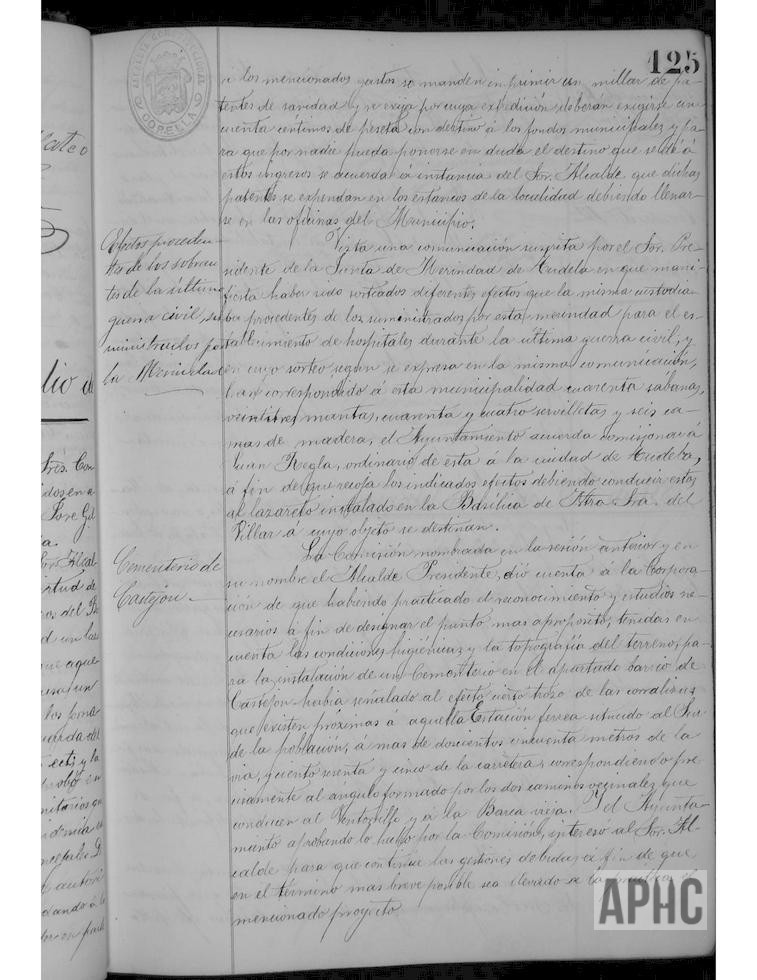 125
ALCALDIA CONSTITUCIONAL
CORELLA
á los mencionados gastos se manden imprimir un millar de pa-
tentes de sanidad y se exija por cuya expedición deberan exigirse cin
cuenta centimos de peseta con destino á los fondos municipales y pa-
ra que por nadie pueda ponerse en duda el destino que se dé á
estos ingresos se acuerda á instancia del Sor. Alcalde que dichas
patentes se expendan en los estancos de la localidad debiendo llenar-
se en las oficinas del Municipio.
Efectos proceden-
tes de los sobran-
tes de la última
guerra civil, su
ministrados por
la Merindad
Vista una comunicación suscrita por el Sor. Pre-
sidente de la Junta de Merindad de Tudela en que mani-
fiesta haber sido sorteados diferentes efectos que la misma custodia-
ba procedentes de los suministrados por esta merindad para el es-
tablecimiento de hospitales durante la última guerra civil, y
en cuyo sorteo segun se expresa en la misma comunicación,
han correspondido á esta municipalidad cuarenta sábanas,
veintitres mantas, cuarenta y cuatro servilletas y seis ca-
mas de madera, el Ayuntamiento acuerda comisionar á
Juan Regla, ordinario de esta á la ciudad de Tudela,
á fin de que recoja los indicados efectos debiendo conducir estos
al lazareto instalado en la Basílica de Ntra. Sra. del
Villar á cuyo objeto se destinan.
Cementerio de
Castejon
La Comisión nombrada en la sesión anterior y en
su nombre el Alcalde Presidente, dió cuenta á la Corpora-
ción de que habiendo practicado el reconocimiento y estudios ne-
cesarios á fin de designar el punto mas apropósito, tenidas en
cuenta las condiciones higiénicas y la topografia del terreno, pa-
ra la instalación de un Cementerio en el apartado barrio de
Castejon habia señalado al efecto cierto trozo de las corralizas
que existen proximas á aquella Estación ferrea situado al Sur
de la población, á mas de doscientos cincuenta metros de la
via, y ciento sesenta y cinco de la carretera, correspondiendo pre-
cisamente al angulo formado por los dos caminos vecinales que
conducen al Ventorrillo y á la Barca vieja. Y el Ayunta-
miento aprobando lo hecho por la Comisión, interesó al Sor. Al-
calde para que continue las gestiones debidas á fin de que
en el término mas breve posible sea llevado á la práctica el
mencionado proyecto.
APHC